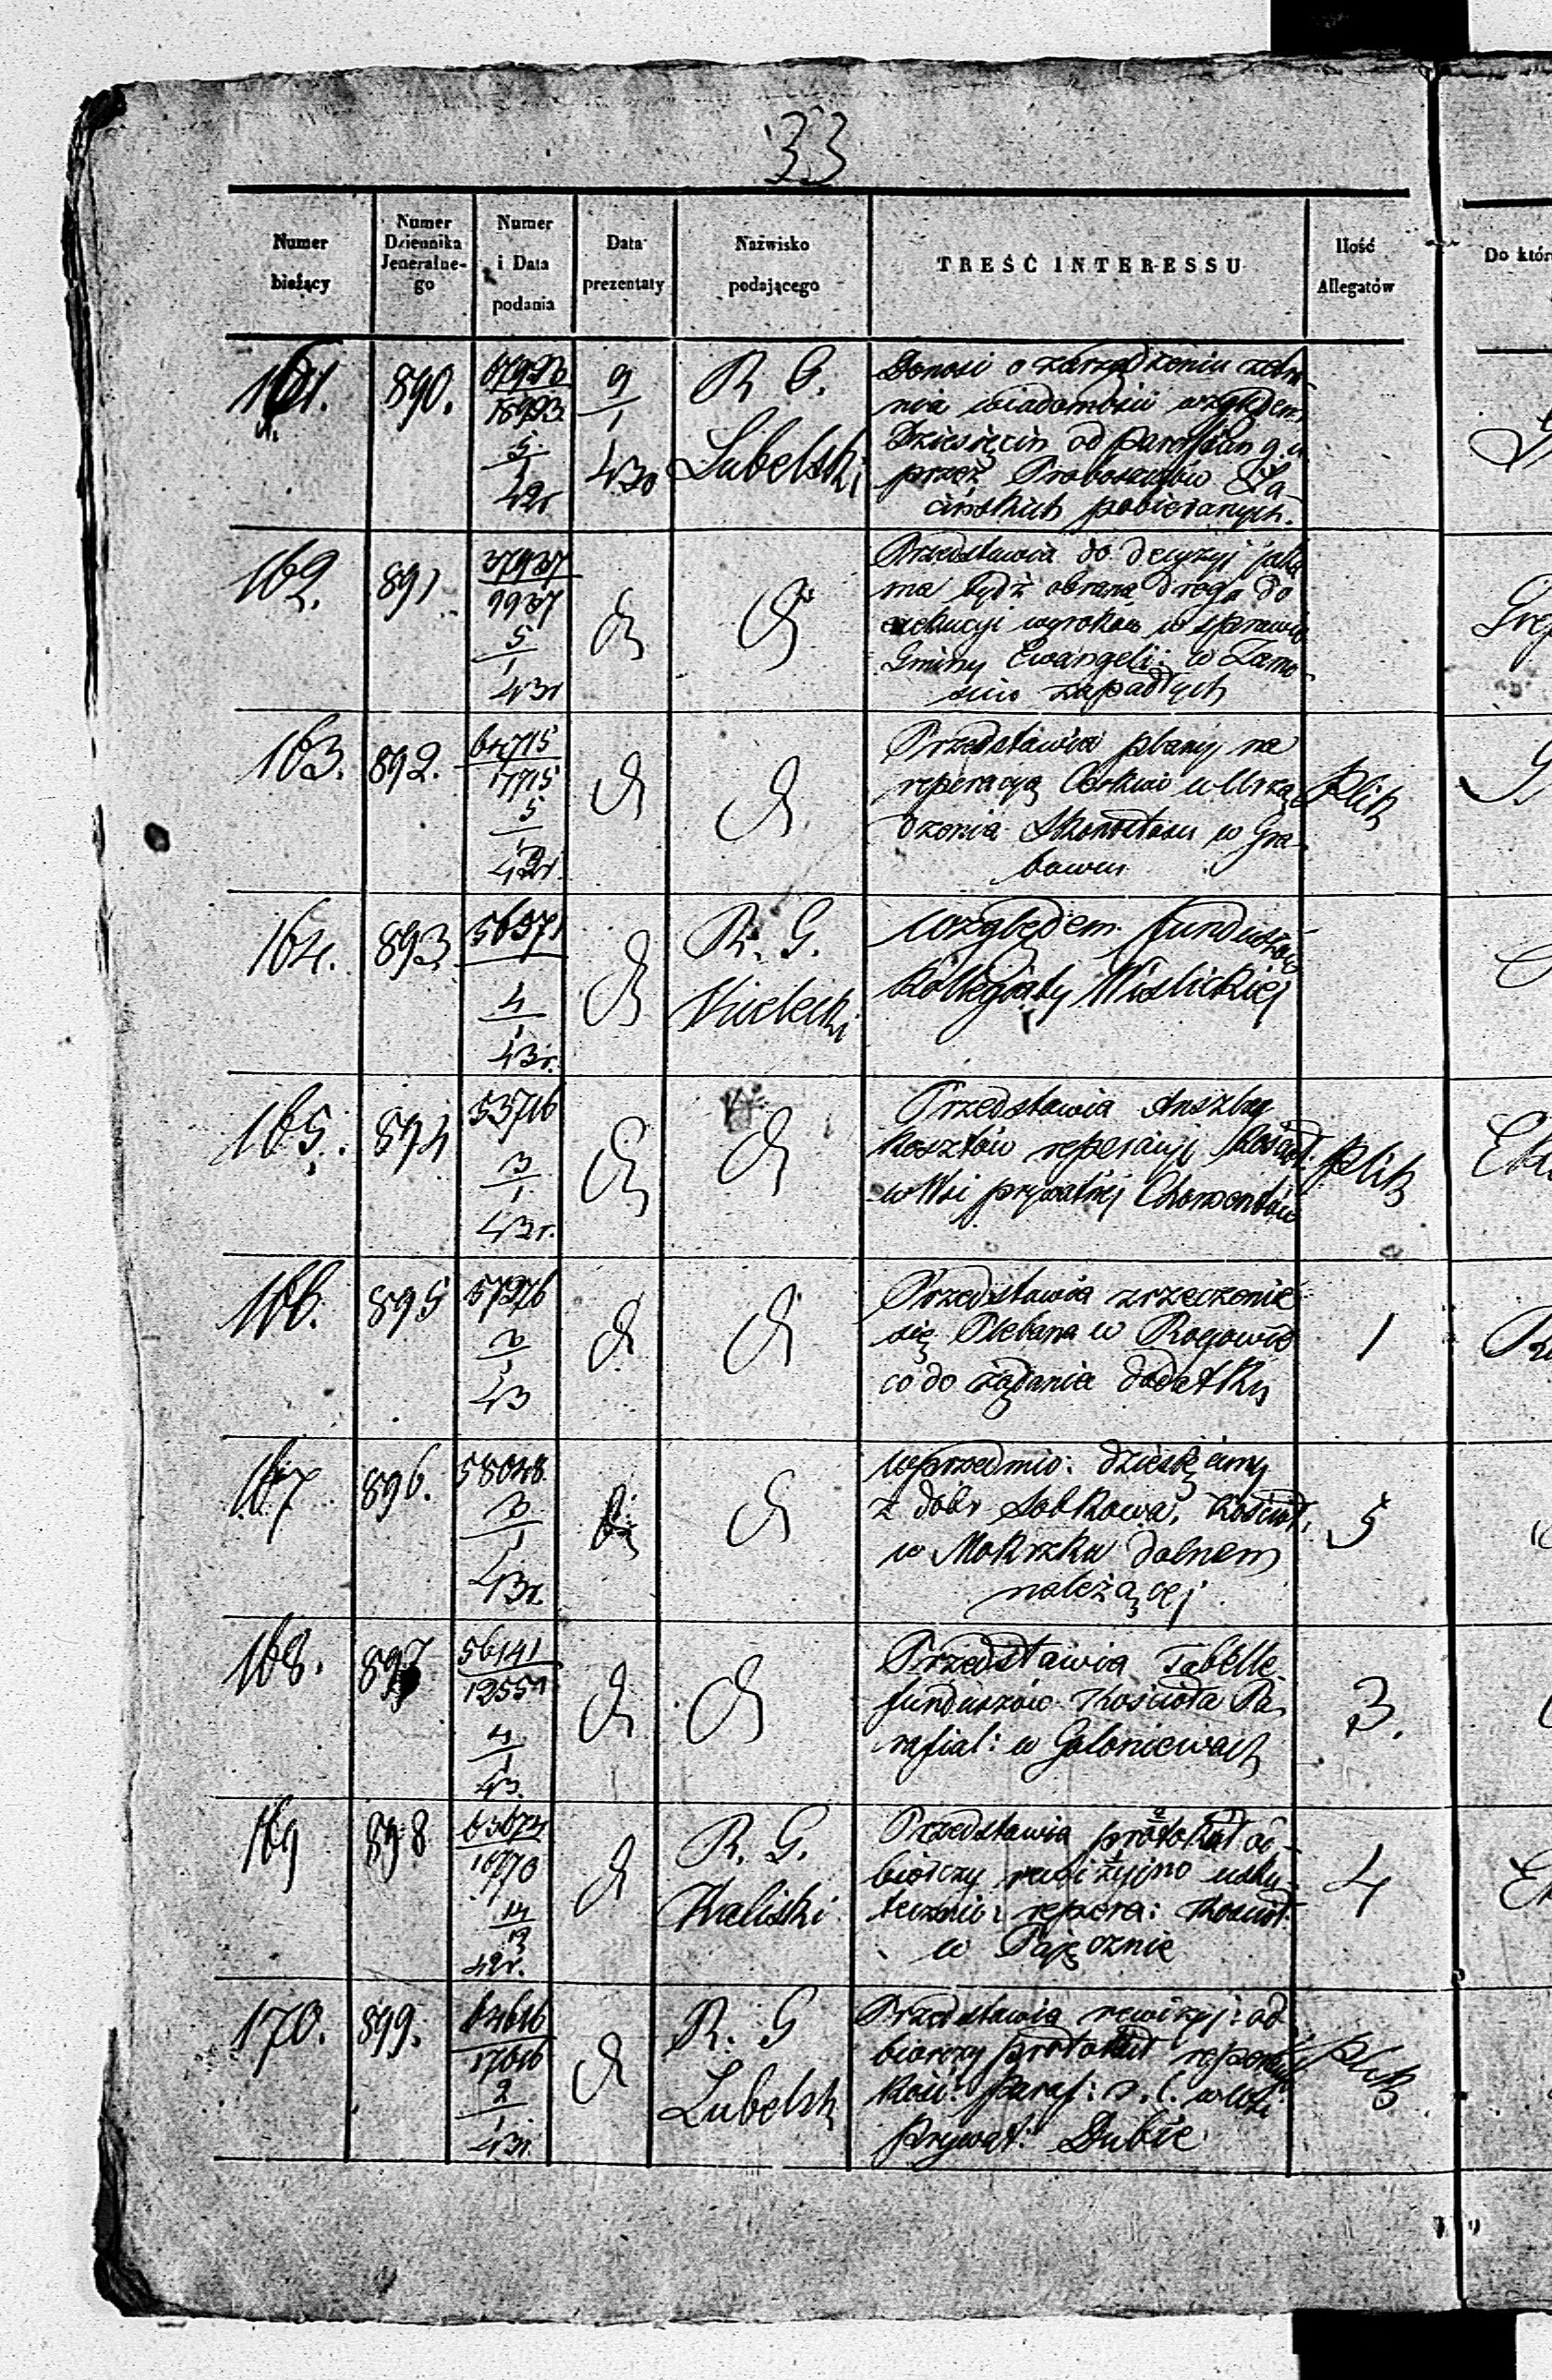 33
Numer bieżący
Numer Dziennika Jeneralne-go
Numer i Data podania
Data prezentaty
Nazwisko podającego
TREŚĆ INTERESSU
Ilość Allegatów
Do któr
161. 890.
5/1 42r
9/1 43r
R G. Lubelski
Donosi o zarządzeniu
nia wiadomości względem
Dziesięcin od Parafian g. u.
przez Proboszczów Ła-
cińskich pobieranych.
162. 891
37937/9937 5/1 43r
d d
Przedstawia do decyzyi jaka
ma bydź obrana droga do
exekucyi wyroków w sprawie
Gminy Ewangeli: w Zamo-
sciu zapadłych
163. 892.
64715/17715 5/1 42r.
d d
Przedstawia plany na
reperacyą Cerkwi w Urzą
dzenia Ikonostasu w Gra-
bowcu
Plik
164. 893
56371 4/1 43r.
d
R. G. Kielecki
względem funduszów
Kollegiaty Wislickiej
165. 894
53716 3/1 43r.
d d
Przedstawia Anszlag
kosztów reperacyi Kościoł.
w Wsi prywatnéj Chomentów
Plik
166. 895
57376 3/1 43
d d
Przedstawia zrzeczenie
się Plebana w Rogowie
co do żądania dodatku
1
167 896.
58048. 3/1 43r.
d d
w przedmio: dziesięciny
z dóbr Sobkowa, Kościoł.
w Mokrsku dolnem
należącej
5
168. 897
56141/12551 4/1 43.
d d
Przedstawia Tabelle
funduszów Kościoła Pa-
rafial: w Goloniewach
3.
169 898
42r.
d
R. G. Kaliski
Przedstawia protokół od-
biorczy rewizyjno usku-
teczni: repera: Kościoł.
w Pajęcznie
4
170. 899.
64616/17616 2/1 43r.
d
R. G Lubelsk
Przedstawia rewizyj: od-
biorczy protokuł reperacyi
Kość: Paraf: r. l. w Wsi
prywat: Dubie
Plik